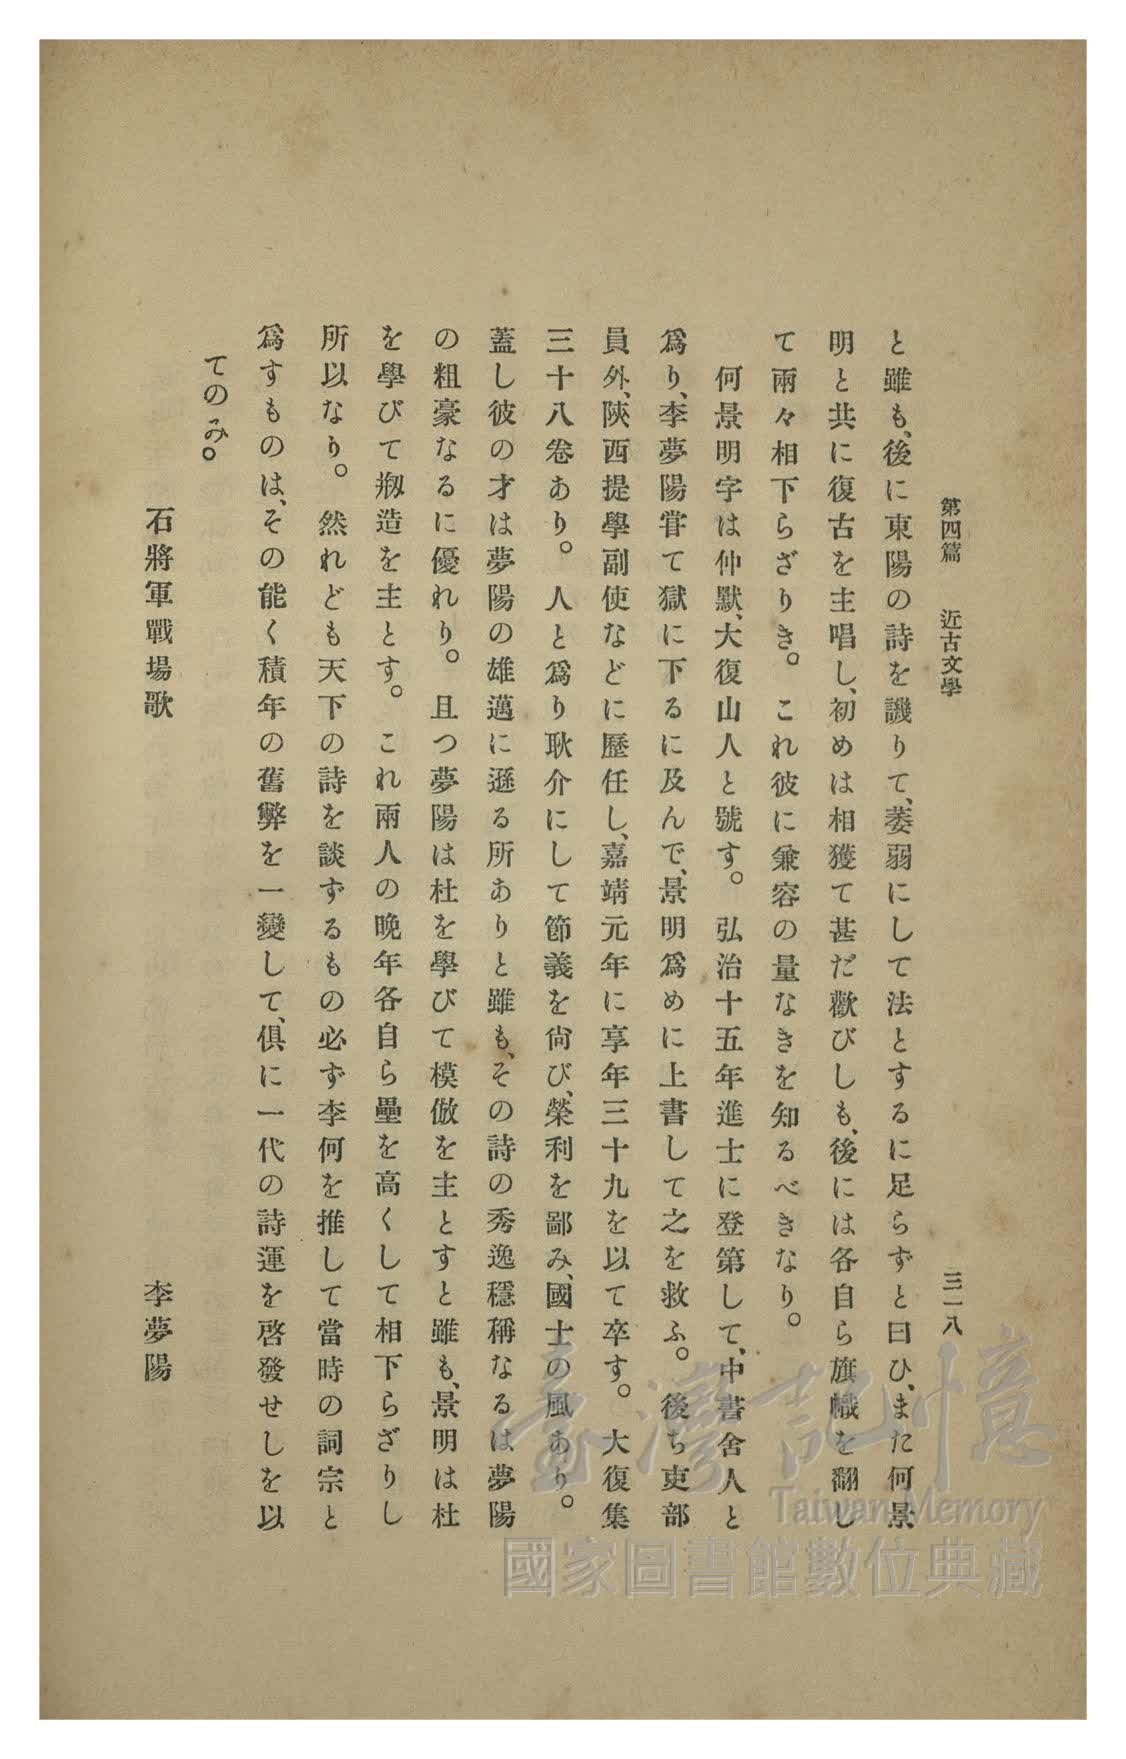 第四篇　近古文學　三一八
と雖も、後に東陽の詩を譏りて、萎弱にして法とするに足らずと曰ひ、また何景
明と共に復古を主唱し、初めは相獲て甚だ歡びしも、後には各自ら旗幟を翻し
て兩々相下らざりき。これ彼に兼容の量なきを知るべきなり。
何景明字は仲默、大復山人と號す。弘治十五年進士に登第して、中書舍人と
爲り、李夢陽甞て獄に下るに及んで、景明爲めに上書して之を救ふ。後ち吏部
員外、陝西提學副使などに歷任し、嘉靖元年に享年三十九を以て卒す。大復集
三十八卷あり。人と爲り耿介にして節義を尙び、榮利を鄙み、國士の風あり。
蓋し彼の才は夢陽の雄邁に遜る所ありと雖も、その詩の秀逸穩稱なるは夢陽
の粗豪なるに優れり。且つ夢陽は杜を學びて模倣を主とすと雖も、景明は杜
を學びて剏造を主とす。これ兩人の晩年各自ら壘を高くして相下らざりし
所以なり。然れども天下の詩を談ずるもの必ず李何を推して當時の詞宗と
爲すものは、その能く積年の舊弊を一變して、俱に一代の詩運を啓發せしを以
てのみ。
石將軍戰場歌　李夢陽
臺灣記憶
Taiwan Memory
國家圖書館數位典藏